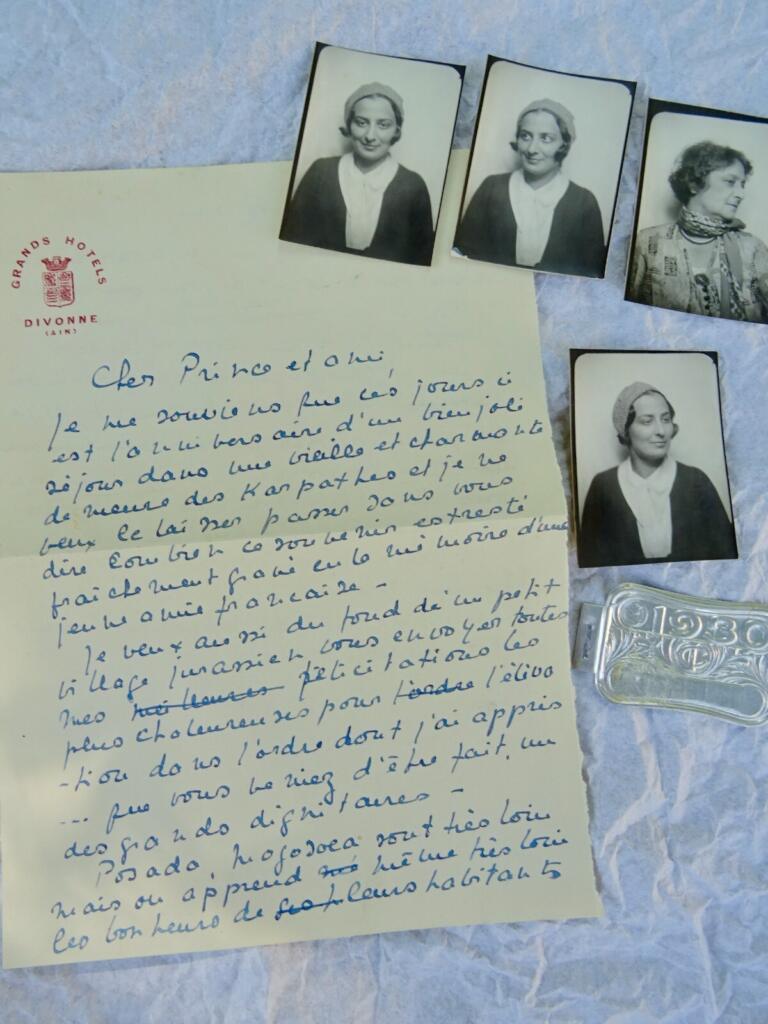 GRANDS HOTELS
DIVONNE
(AIN)
Cher Prince et ami
Je me souviens que ces jours ci
est l'anniversaire d'un bien joli
séjour dans une vieille et charmante
demeure des Karpathes et je ne
veux le laisser passer sans vous
dire combien ce souvenir est resté
fraichement gravé en la mémoire d'une
jeune amie francaise -
Je veux aussi du fond de un petit
village jurassien vous envoyer toutes
mes meilleures félicitations les
plus chaleureuses pour l'ordre l'éléva
-tion dans l'ordre dont j'ai appris
... que vous veniez d'être fait, un
des grands dignitaires -
Posada, Mogosoea sont très loin
mais on apprend même très loin
les bonheurs de leurs habitants
1930